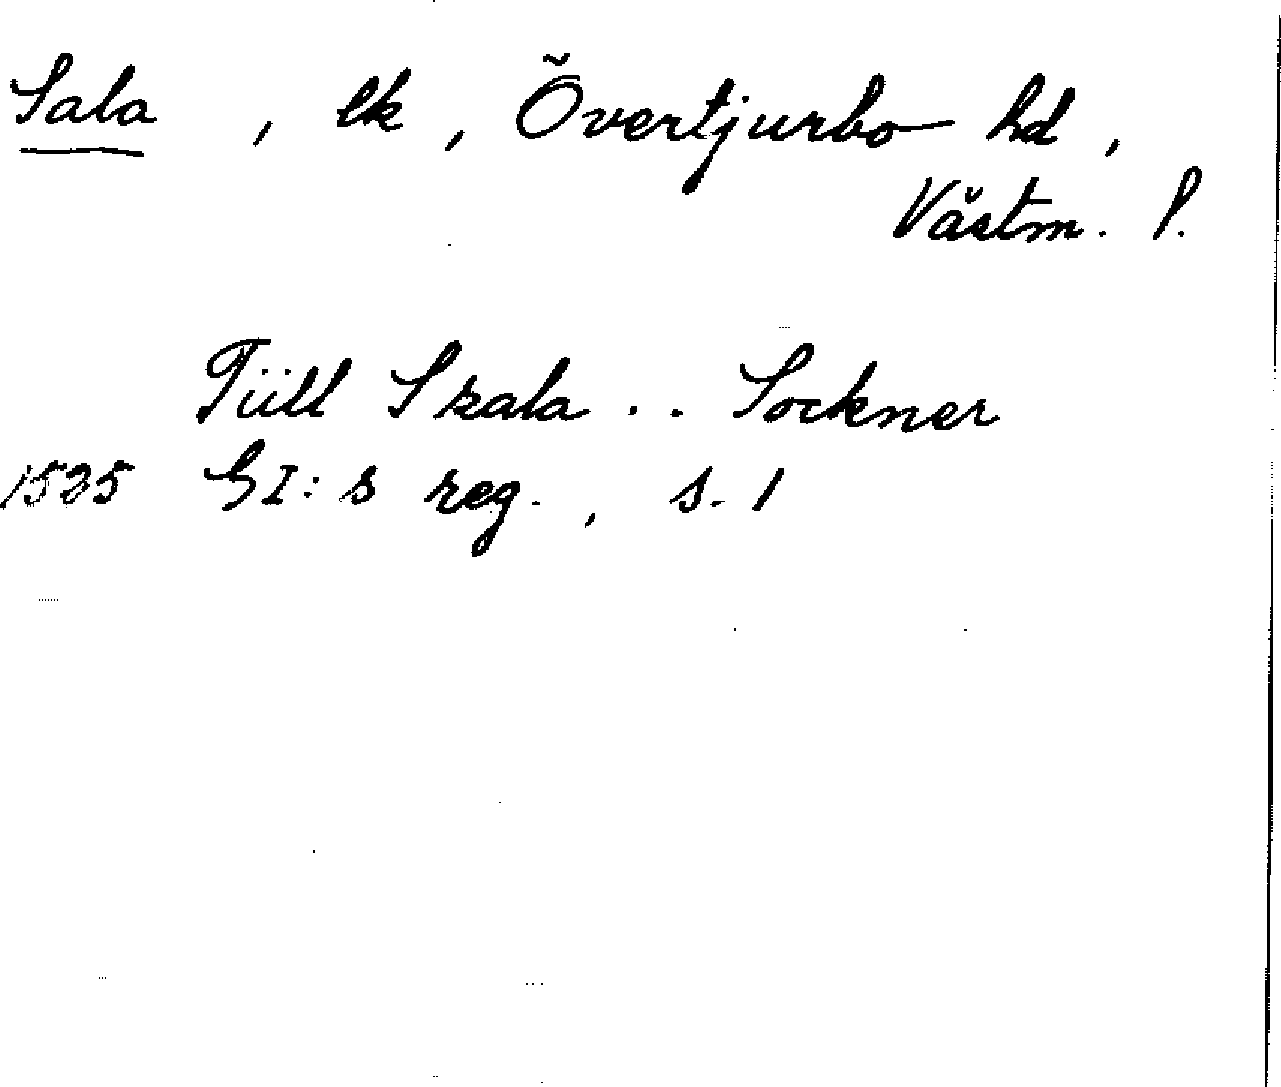 Sala , lk , Övertjurbo hd ,
Västm. l.
Tiill Szala . . Sockner
1525 GI:s reg. , s. 1